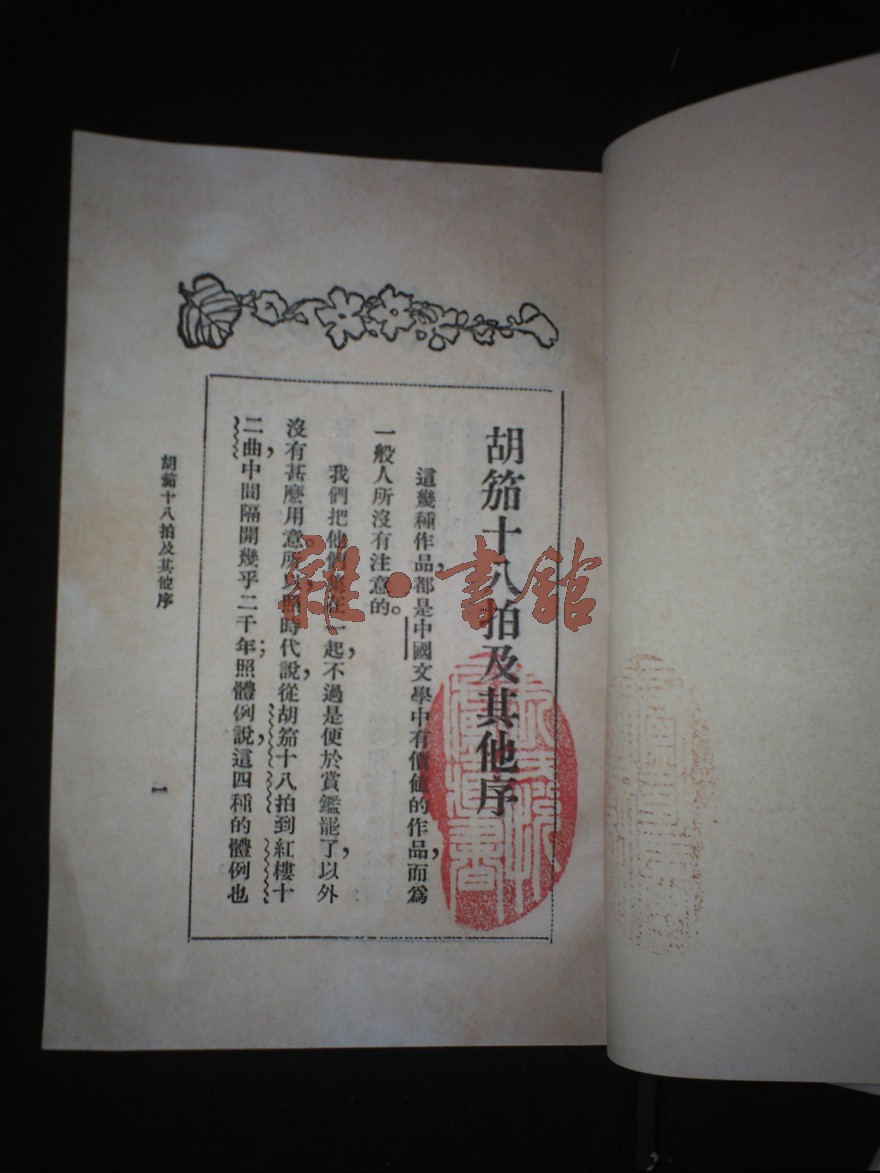 胡笳十八拍及其他序
這幾種作品，都是中國文學中有價値的作品，而爲
一般人所沒有注意的。
我們把他們 在一起，不過是便於賞鑑罷了，以外
沒有甚麼用意。所以照時代說，從胡笳十八拍到紅樓十
二曲，中間隔開幾乎二千年；照體例說，這四種的體例也
胡笳十八拍及其他序
一
雜·書館